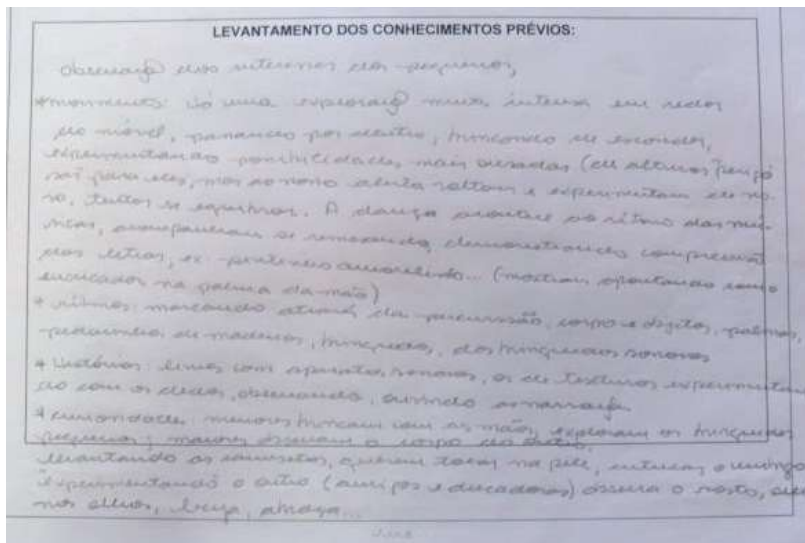 LEVANTAMENTO DOS CONHECIMENTOS PRÉVIOS:
observação dos interesses dos pequenos,
*movimento: há uma exploração muito intensa em redor
do móvel, passando por dentro, brincando de esconder,
experimentando possibilidades mais ousadas (de alturas)
para eles, mas ao nosso alerta voltam e experimentam de no-
vo, tentam se equilibrar. A dança acontece ao ritmo das mú-
sicas, acompanham se remexendo, demonstrando compreensão
das letras, ex: pintinho amarelinho... (mostram apontando com o
indicador na palma da mão)
* ritmos: marcando através da percussão, corpo e objetos, palmas,
pedacinhos de madeiras, brinquedos, dos brinquedos sonoros
* Histórias: livros com aparatos sonoros, os de texturas experimentan
do com os dedos, observando, ouvindo a narração
* curiosidades: menores brincam com as mãos, exploram os brinquedos
pequenos; maiores observam o corpo do outro,
levantando as camisetas, querem tocar na pele, o umbigo
experimentando o outro (amigos e educadoras) observa o rosto,
nos olhos, beija, abraça...